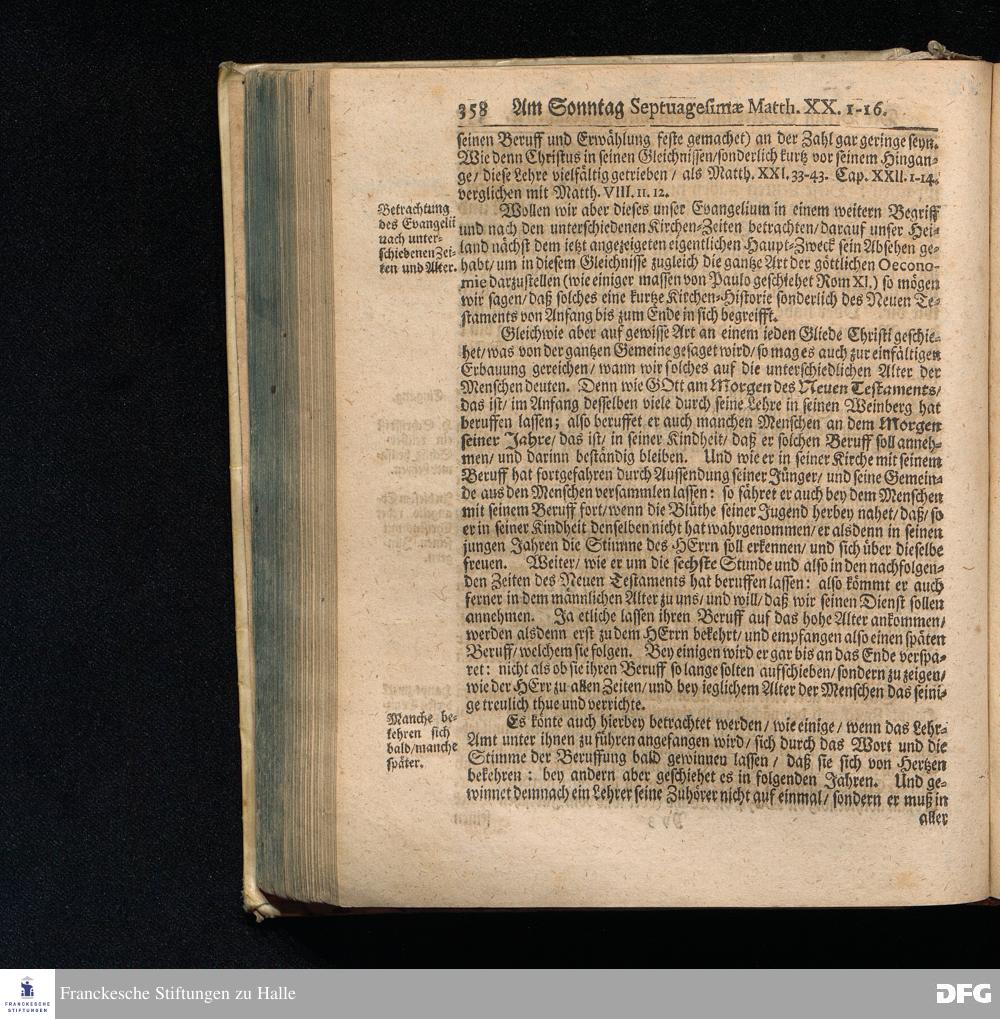 358 Am Sonntag Septuagesimæ Matth. XX. 1-16.
seinen Beruff und Erwählung feste gemachet) an der Zahl gar geringe seyn.
Wie denn Christus in seinen Gleichnissen/sonderlich kurtz vor seinem Hingan-
ge/ diese Lehre vielfältig getrieben/ als Matth. XXI. 33-43. Cap. XXII. 1-14.
verglichen mit Matth. VIII. 11. 12.
Betrachtung
des Evangelii
nach unter-
schiedenen Zei-
ten und Alter.
Wollen wir aber dieses unser Evangelium in einem weitern Begriff
und nach den unterschiedenen Kirchen-Zeiten betrachten/ darauf unser Hei-
land nächst dem ietzt angezeigeten eigentlichen Haupt-Zweck sein Absehen ge-
habt/ um in diesem Gleichnisse zugleich die gantze Art der göttlichen Oecono-
mie darzustellen (wie einiger massen von Paulo geschiehet Rom XI.) so mögen
wir sagen/ daß solches eine kurtze Kirchen-Historie sonderlich des Neuen Te-
staments von Anfang bis zum Ende in sich begreifft.
Gleichwie aber auf gewisse Art an einem ieden Gliede Christi geschie-
het/ was von der gantzen Gemeine gesaget wird/ so mag es auch zur einfältigen
Erbauung gereichen/ wann wir solches auf die unterschiedlichen Alter der
Menschen deuten. Denn wie GOtt am Morgen des Neuen Testaments/
das ist/ im Anfang desselben viele durch seine Lehre in seinen Weinberg hat
beruffen lassen; also beruffet er auch manchen Menschen an dem Morgen
seiner Jahre/ das ist/ in seiner Kindheit/ daß er solchen Beruff soll anneh-
men/ und darinn beständig bleiben. Und wie er in seiner Kirche mit seinem
Beruff hat fortgefahren durch Aussendung seiner Jünger/ und seine Gemein-
de aus den Menschen versammlen lassen: so fähret er auch bey dem Menschen
mit seinem Beruff fort/ wenn die Blüthe seiner Jugend herbey nahet/ daß/ so
er in seiner Kindheit denselben nicht hat wahrgenommen/ er alsdenn in seinen
jungen Jahren die Stimme des HErrn soll erkennen/ und sich über dieselbe
freuen. Weiter/ wie er um die sechste Stunde und also in den nachfolgen-
den Zeiten des Neuen Testaments hat beruffen lassen: also kömmt er auch
ferner in dem männlichen Alter zu uns/ und will/ daß wir seinen Dienst sollen
annehmen. Ja etliche lassen ihren Beruff auf das hohe Alter ankommen/
werden alsdenn erst zu dem HErrn bekehrt/ und empfangen also einen späten
Beruff/ welchem sie folgen. Bey einigen wird er gar bis an das Ende verspa-
ret: nicht als ob sie ihren Beruff so lange solten aufschieben/ sondern zu zeigen/
wie der HErr zu allen Zeiten/ und bey ieglichem Alter der Menschen das seini-
ge treulich thue und verrichte.
Manche be-
kehren sich
bald/manche
später.
Es könte auch hierbey betrachtet werden/ wie einige/ wenn das Lehr-
Amt unter ihnen zu führen angefangen wird/ sich durch das Wort und die
Stimme der Beruffung bald gewinnen lassen/ daß sie sich von Hertzen
bekehren: bey andern aber geschiehet es in folgenden Jahren. Und ge-
winnet demnach ein Lehrer seine Zuhörer nicht auf einmal/ sondern er muß in
aller
FRANCKESCHE
STIFTUNGEN
Franckesche Stiftungen zu Halle
DFG